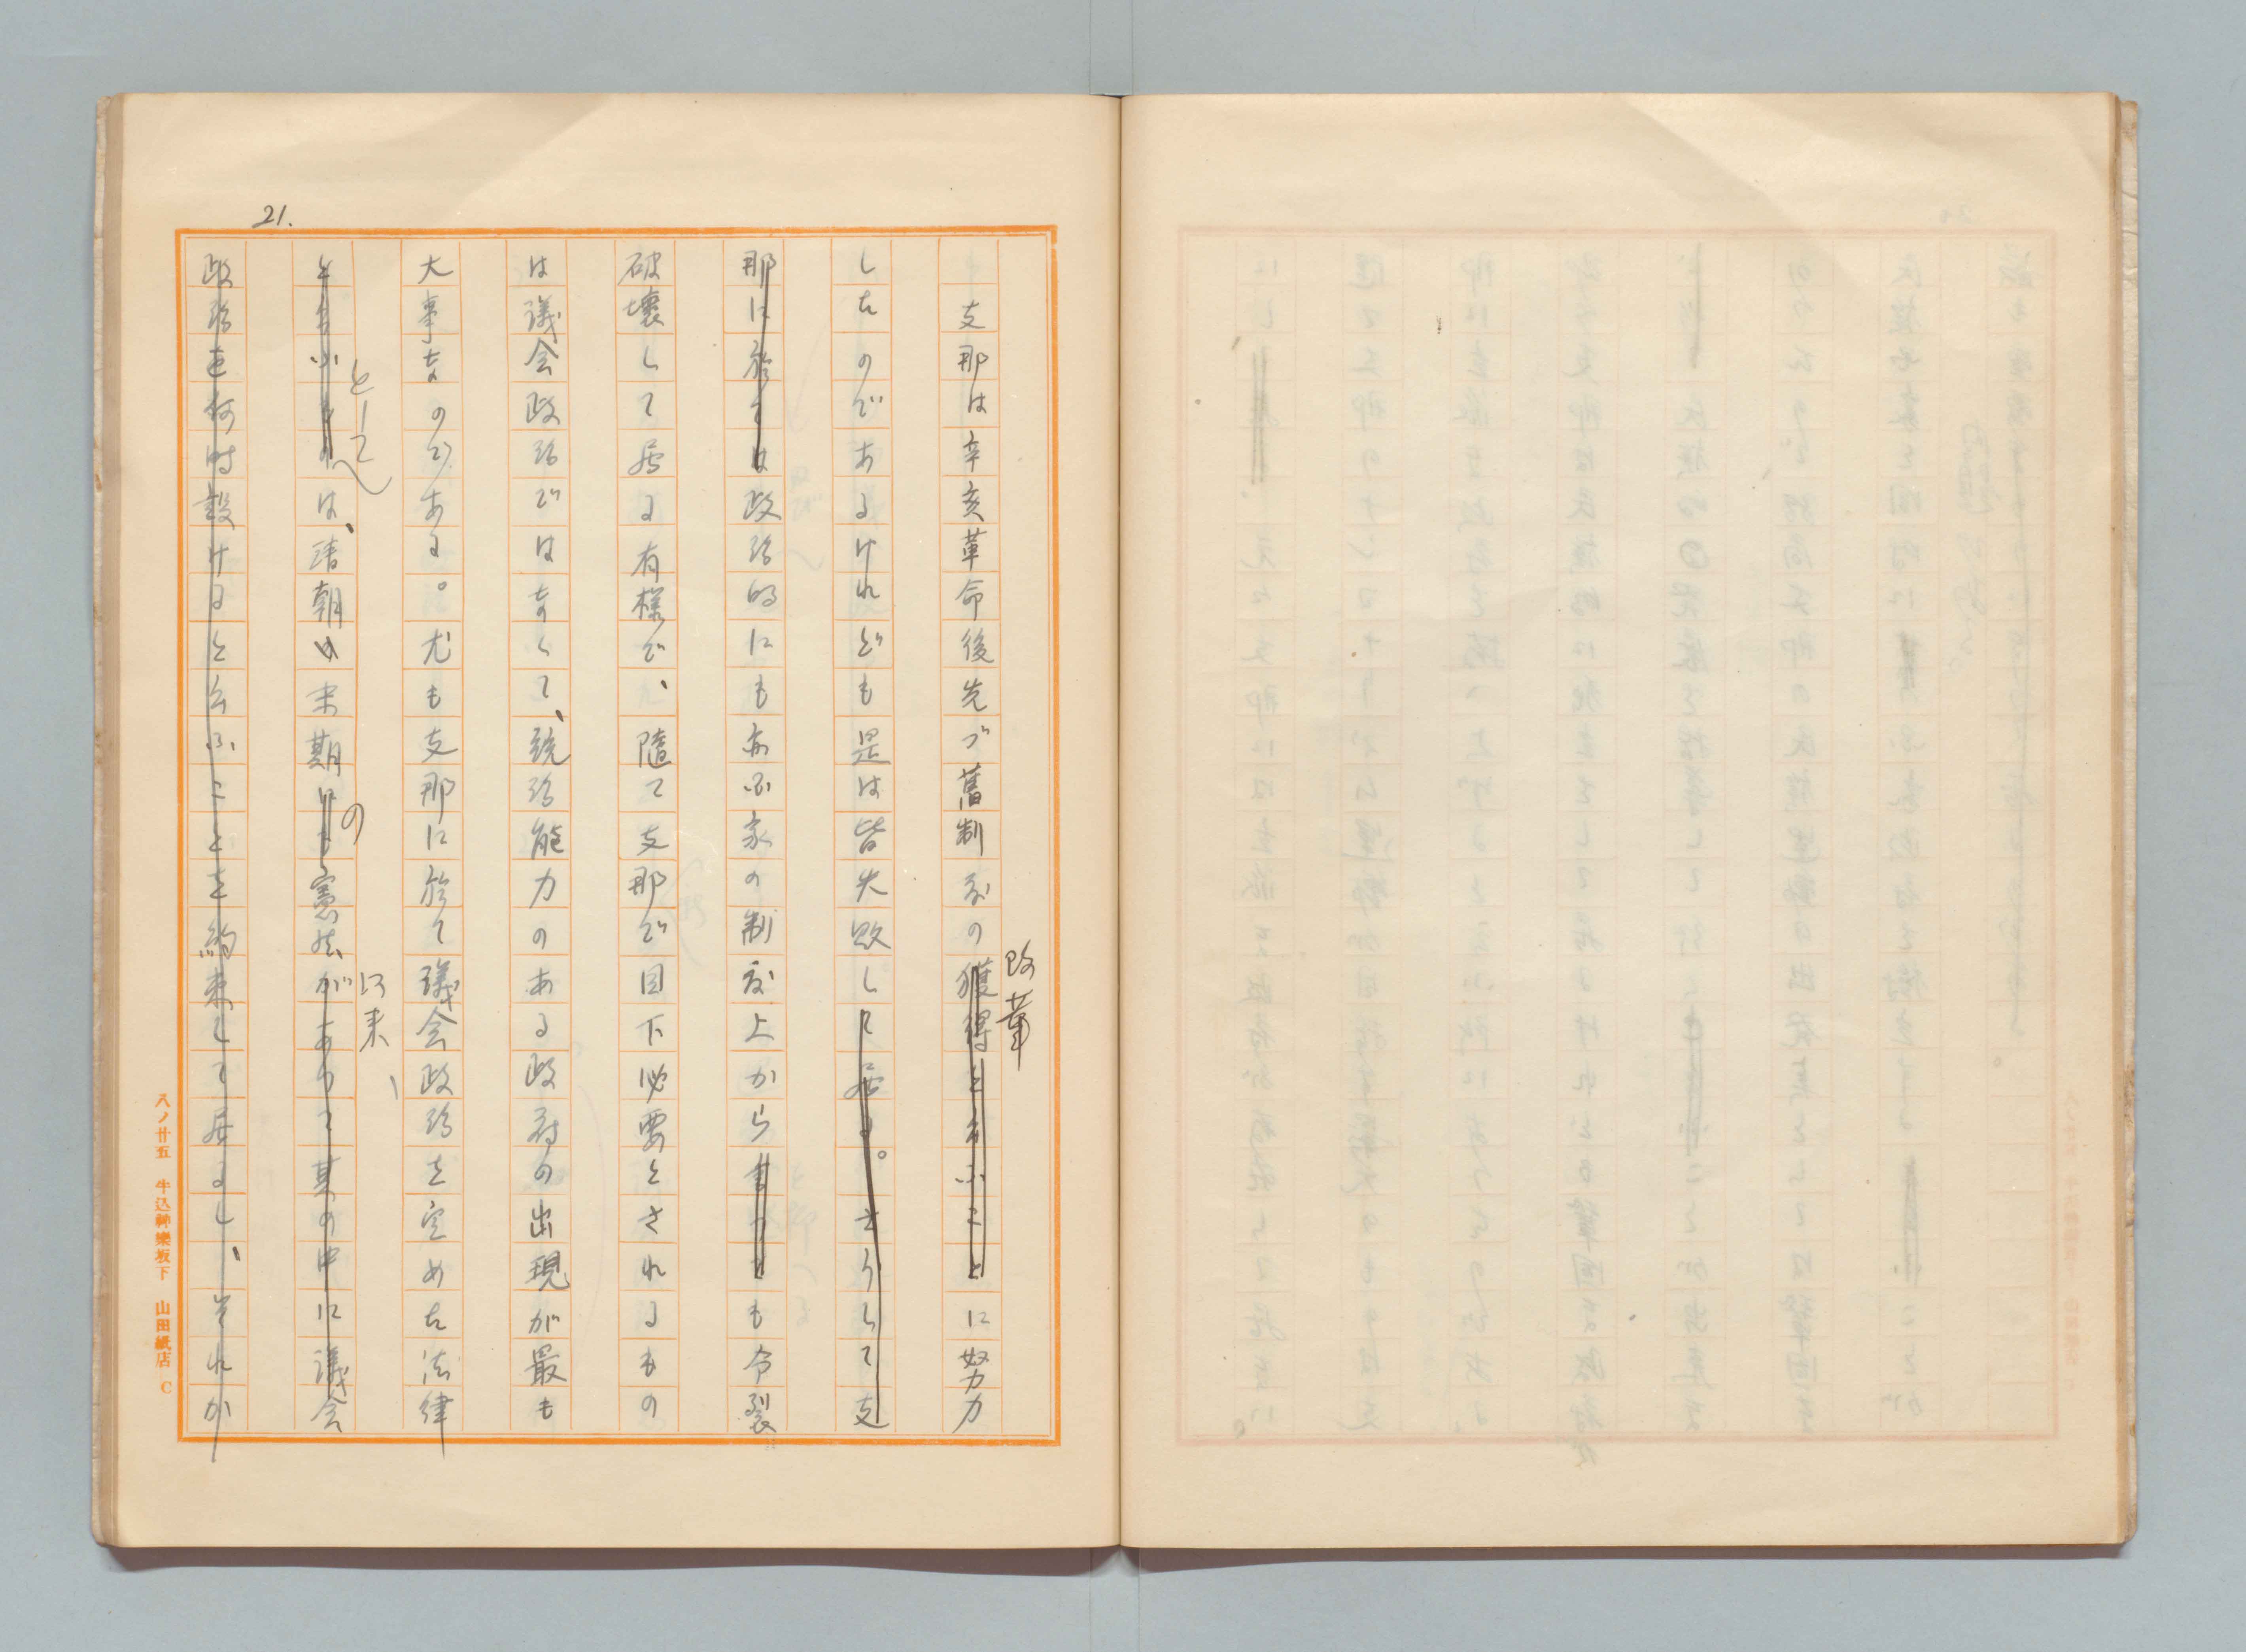 21.
支那は辛亥革命後先づ舊制度の獲得と云ふことに努力
改革
したのであるけれども是は皆失敗して居る。さうして支
那に於ては政治的にも亦国家の制度上からも
も令裂
破壊して居る有様で、隨て支那で目下必要とされるもの
は議会政治ではなくて、統治能力のある政府の出現が最も
大事なのである。尤も支那に於て議会政治を定めた法律
として
と云ふものは、清朝の末期に憲法がありて其の中に議会
の
以来、
政治を何時設けると云ふことを約束して居るし、それか
八ノ廿五 牛込神樂坂下 山田紙店 C